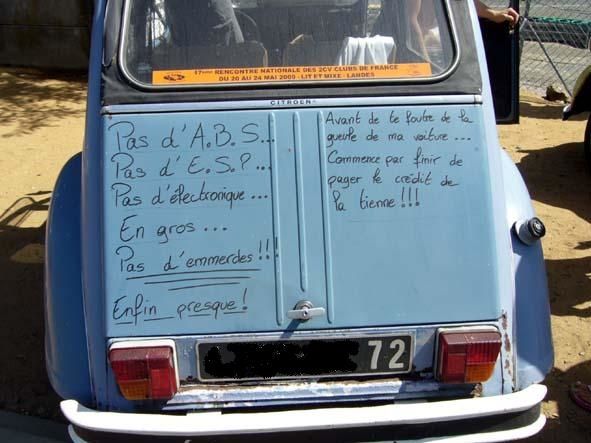 17ème RENCONTRE NATIONALE DES 2CV CLUBS DE FRANCE
DU 20 AU 24 MAI 2009 - LIT ET MIXE - LANDES
CITROËN
Pas d'A.B.S...
Pas d'E.S.P...
Pas d'électronique...
En gros...
Pas d'emmerdes!!!
Enfin presque!
Avant de te foutre de la
gueule de ma voiture...
Commence par finir de
payer le crédit de
la tienne!!!
72